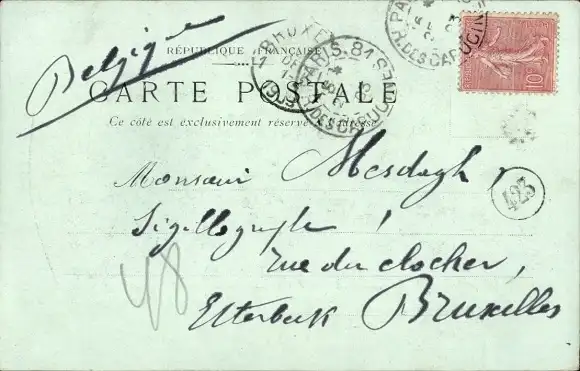 Belgique
RÉPUBLIQUE FRANÇAISE
CARTE POSTALE
Ce côté est exclusivement réservé à l'adresse
PARIS. 81
R. DES CAPUCINES
BRUXEL
1903
PA
R. DES CAPUCIN
10
423
Monsieur Mesdagh
Sigillographe !
rue du clocher,
48
Etterbeek Bruxelles